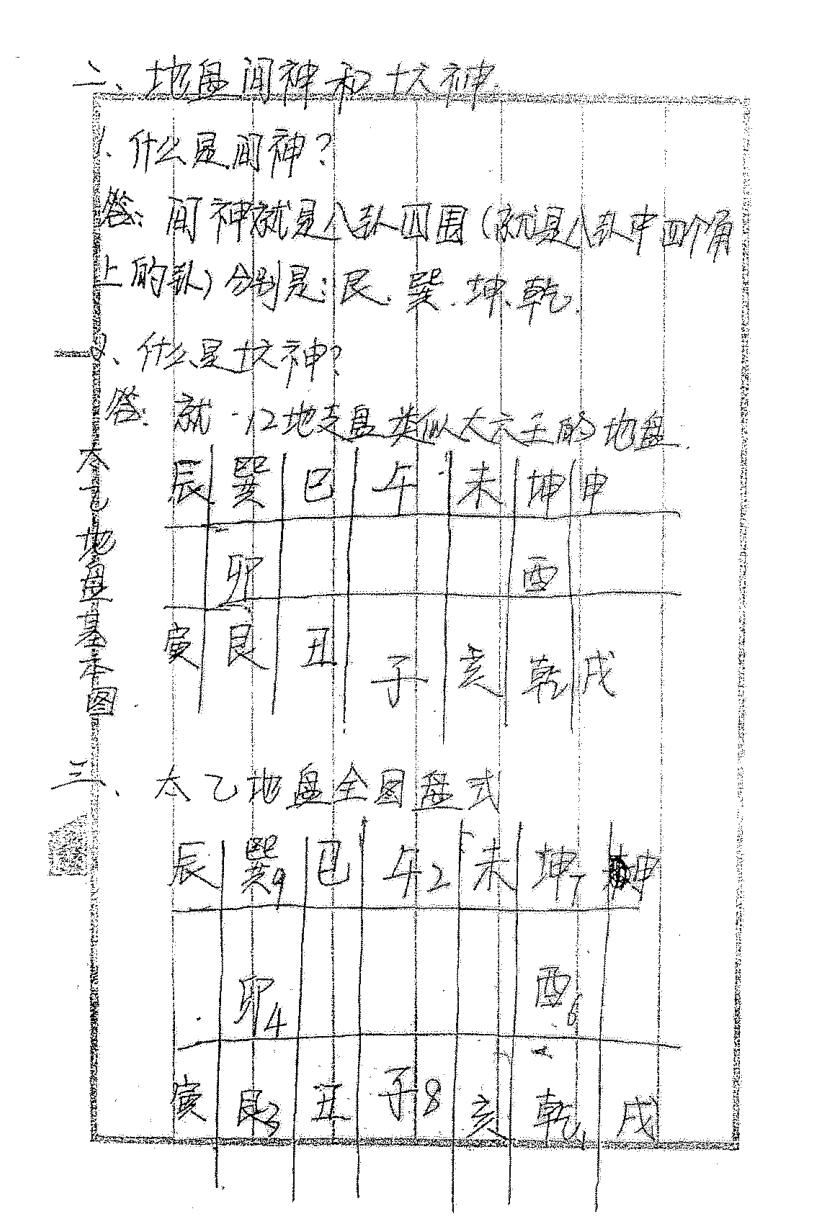 二、地盘间神和十六神.
1、什么是间神?
答:间神就是八卦四围(就是八卦中四个角
上的卦)分别是:艮、巽、坤、乾.
2、什么是十六神?
答:就·12地支盘类似大六壬的地盘.
太乙地盘基本图
辰 巽 巳 午 未 坤 申
卯 酉
寅 艮 丑 子 亥 乾 戌
三、太乙地盘全图盘式
辰 巽9 巳 午2 未 坤7 申
卯4 酉6
寅 艮3 丑 子8 亥 乾1 戌